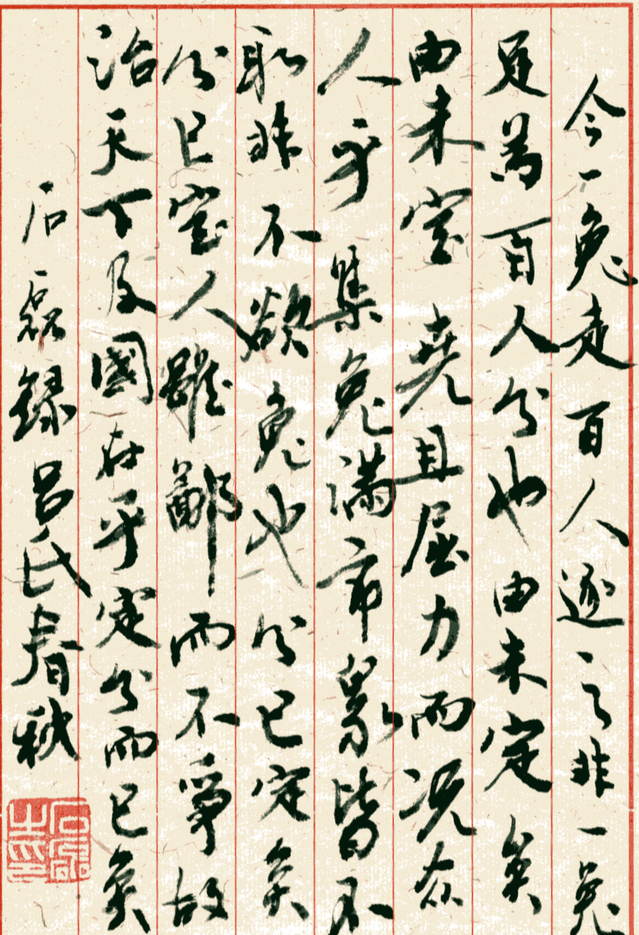 今一兔走百人逐之非一兔
足為百人分也由未定矣
由未定堯且屈力而況众
人乎集兔滿市衆皆不
取非不欲兔也分已定矣
分已定人雖鄙而不爭故
治天下及國在乎定分而已矣
石磊録呂氏春秋
石磊
之印